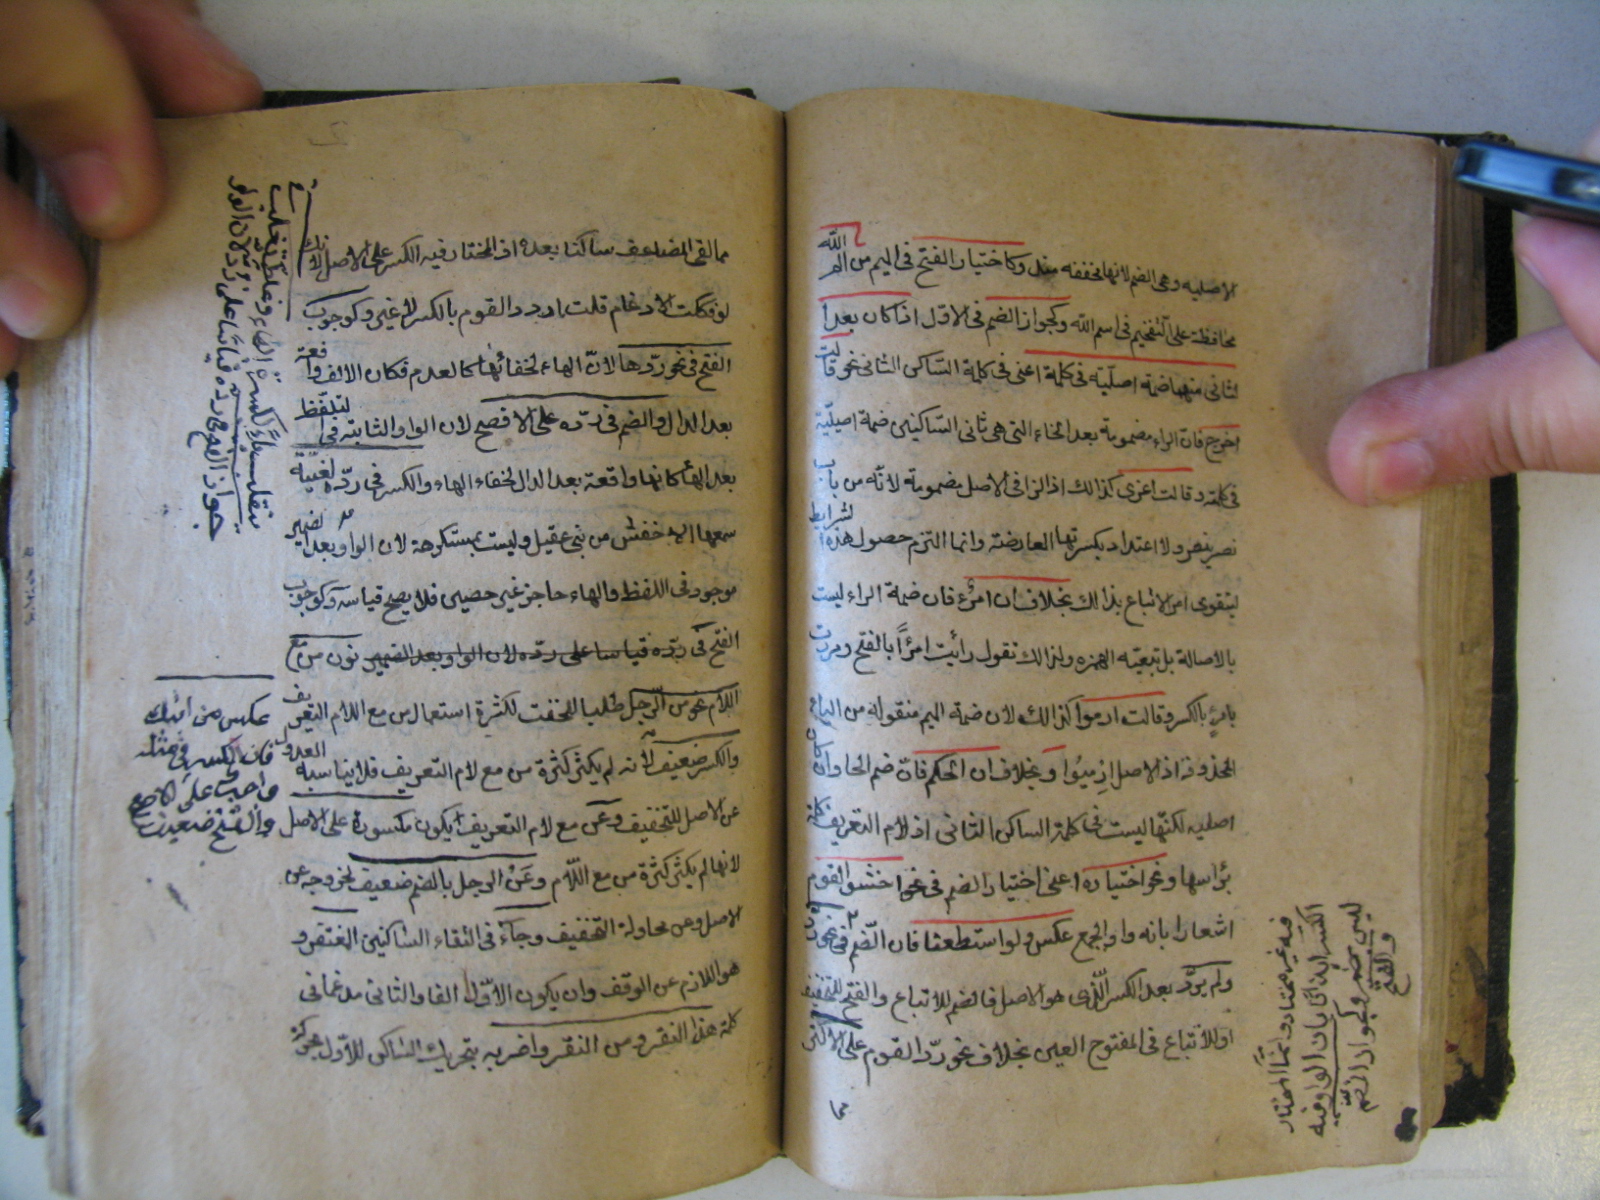 الاصليه وهى الضم لانها مخففه منذ وكاختيار الفتح فى الميم من الم الله
محافظة على التفخيم فى اسم الله وكجواز الضم فى الاول اذا كان بعد ا
لثانى منهما ضمة اصليّة فى كلمة اعنى فى كلمة السّاكن الثانى نحو قالت
اخرج فانّ الراء مضمومة بعد الخاء التى هى ثانى السّاكنين ضمة اصيليّة
فى كلمة وقالت اغزى كذالك اذ الزا فى الاصل مضمومة لانّه من باب
نصر ينصر ولا اعتداد بكسرتها العارضة وانما التزم حصول هذه الشرايط
ليتقوى امر الاتباع بذالك بخلاف ان امرؤ فان ضمة الراء ليست
بالاصالة بل بتبعيّه الهمزه ولذالك تقول رأيت امرًأ بالفتح ومررت
بامرئٍ بالكسر وقالت ارموا كذالك لان ضمة الميم منقولة من الياء
المحذوفة اذ الاصل ارميُوا وبخلاف ان الحكم فانّ ضم الحا وان كان
اصليه لكنّها ليست فى كلمة الساكن الثانى اذ لام التعريف كلمة
برأسها ونحو اختياره اعنى اختيار الضم فى نحو اخشو القوم
اشعارا بانه واو الجمع عكس ولو استطعنا فان الضّم فى نحو ردّ
ولم يردّ بعد الكسر الذّى هو الاصل فالضم للاتباع والفتح للتخفيف
او للاتباع فى المفتوح العين بخلاف نحو ردّ القوم على الاكثر
فيه غير مختار وانّما المختار
الكسر ايذانا بان الواو فيه
ليس ضمير وكجواز الضمّ
والفتح
مما لقى المضاعف ساكنا بعده اذ المختار فيه الكسر على الاصل لانك
لو فككت الادغام قلت اردد القوم بالكسر لا غير وكوجوب
الفتح فى نحو ردّها لانّ الهاء لخفائها كالعدم فكان الالف واقعة
بعد الدال والضم فى ردّه على الافصح لان الواو الثابتة فى التلفّظ
بعد الهأ كانها واقعة بعد الدال لخفاء الهاء والكسر فى ردّه لغيّة
سمعها الاخفش من بنى عقيل وليست بمستكرهة لان الواو بعد الضمير
موجود فى اللفظ والهاء حاجز غير حصين فلا يصح قياسه وكوجوب
الفتح فى ردّه قياسا على ردّه لان الواو بعد الضمير نون من مع
اللام نحو من الرّجل طلبا للخفت لكثرة استعمال من مع اللام التعريف
والكسر ضعيف لأنه لم يكثر كثرة من مع لام التعريف فلا يناسبه العدول
عن الاصل للتخفيف وعن مع لام التعريف يكون مكسورة على الاصل
لانها لم يكثر كثرة من مع اللّام وعَنُ الرجل بالضم ضعيف لخروجه عن
الاصل وعن محاولة التخفيف وجاءَ فى التقاء الساكنين المغتفر و
هو اللازم عن الوقف وان يكون الاوّل الفا والثانى مدغما فى
كلمة هذا النقر ومن النقر واضربه بتحريك الساكن للاوّل بحركة
جواز الفتح فى ردّه قياسا على
عكس من ابنك
فان الكسر فى مثله
واجب على الاصح
والفتح ضعيف